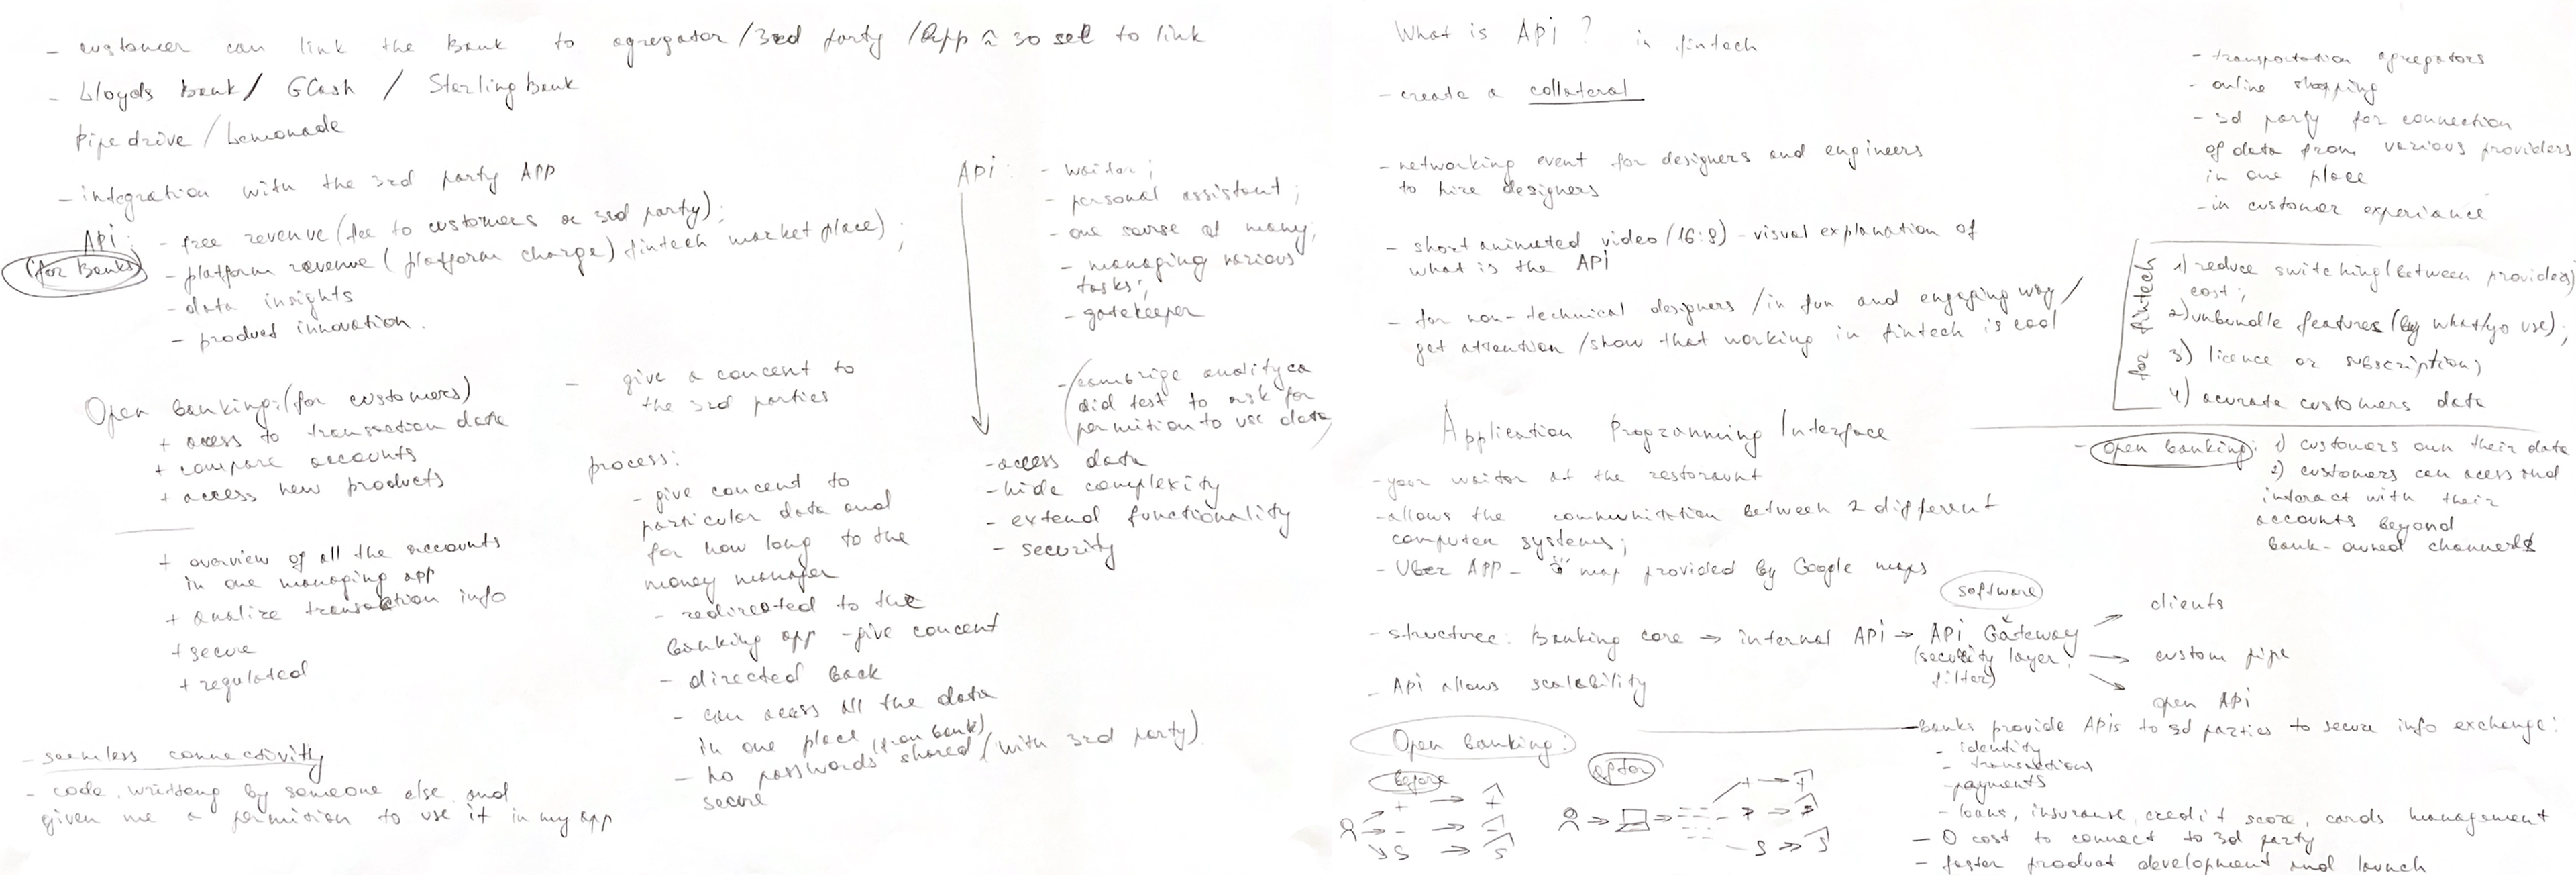 - customer can link the Bank to agregator / 3rd party / App ≈ 30 sec to link
- Lloyds bank / GCash / Starling Bank
Pipedrive / Lemonade
- integration with the 3rd party APP
APi: - free revenue (fee to customers or 3rd party);
(for Banks) - platform revenue (platform charge) fintech market place);
- data insights
- product innovation.
Open banking: (for customers)
+ acess to transaction data
+ compare accounts
+ access new products
+ overview of all the accounts
in one managing app
+ analize transaction info
+ secure
+ regulated
- seemless connectivity
- code writteng by someone else and
given me a permition to use it in my app
- give a concent to
the 3rd parties
process:
- give concent to
particular data and
for how long to the
money manager
- redirected to the
banking app - give concent
- directed back
- can acess all the data
in one place (from bank)
- no passwords shared (with 3rd party)
secure
APi: - waiter;
- personal assistant;
- one sourse at many;
- managing various
tasks;
- gatekeeper
- (cambrige analityca
did test to ask for
permition to use data)
- access data
- hide complexity
- extend functionality
- security
What is APi? in fintech
- create a collateral
- networking event for designers and engineers
to hire designers
- short animated video (16:9) - visual explanation of
what is the APi
- for non-technical designers / in fun and engaging way /
get attention / show that working in fintech is cool
Application Programming Interface
- your waitor at the restoraunt
- allows the communitation between 2 different
computer systems;
- Uber APP - map provided by Google maps
software
- structure: Banking core → internal APi → APi Gateway
(security layer,
filter)
clients
custom pipe
open APi
- Api allows scalability
Open banking:
before
after
- transportation agregators
- online shopping
- 3d party for connection
of data from various providers
in one place
- in customer experiance
for fintech
1) reduce switching (between providers)
cost;
2) unbundle features (by what yo use);
3) licence or subscription;
4) acurate customers data
- Open banking: 1) customers own their data
2) customers can acess and
interact with their
accounts beyond
bank-owned channels
- Banks provide APis to 3d parties to secure info exchange:
- identity
- transactions
- payments
- loans, insuranse, credit score, cards management
- 0 cost to connect to 3d party
- faster product development and launch